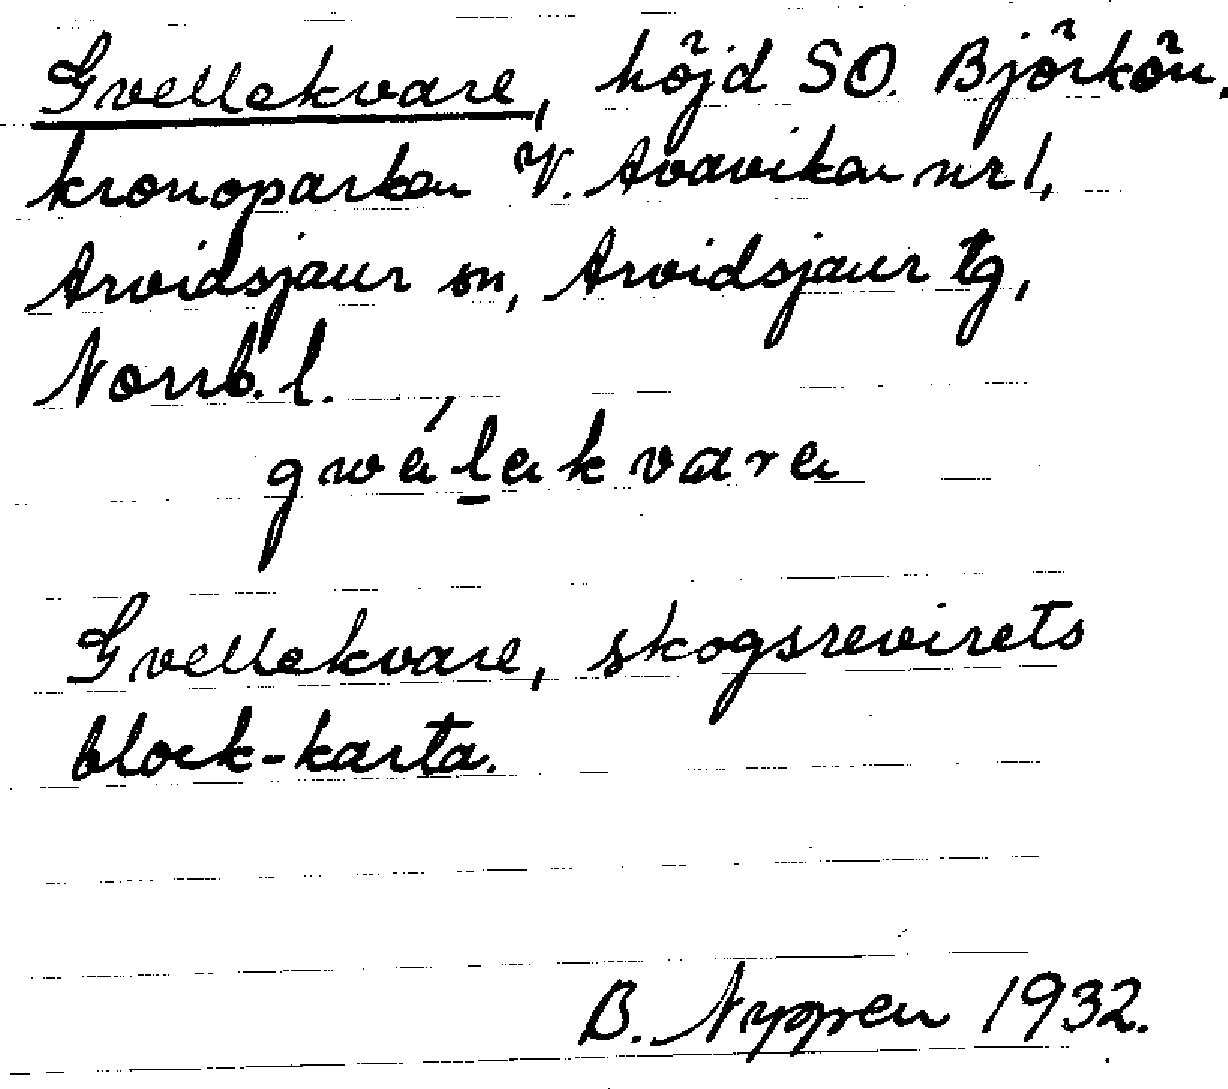 Gvellekvare, höjd SO. Björkön,
kronoparken V. Avaviken nr 1,
Arvidsjaur sn, Arvidsjaur tg,
Norrb. l.
gwálakvara
Gvellekvare, skogsrevirets
block-karta.
B. Nyppen 1932.